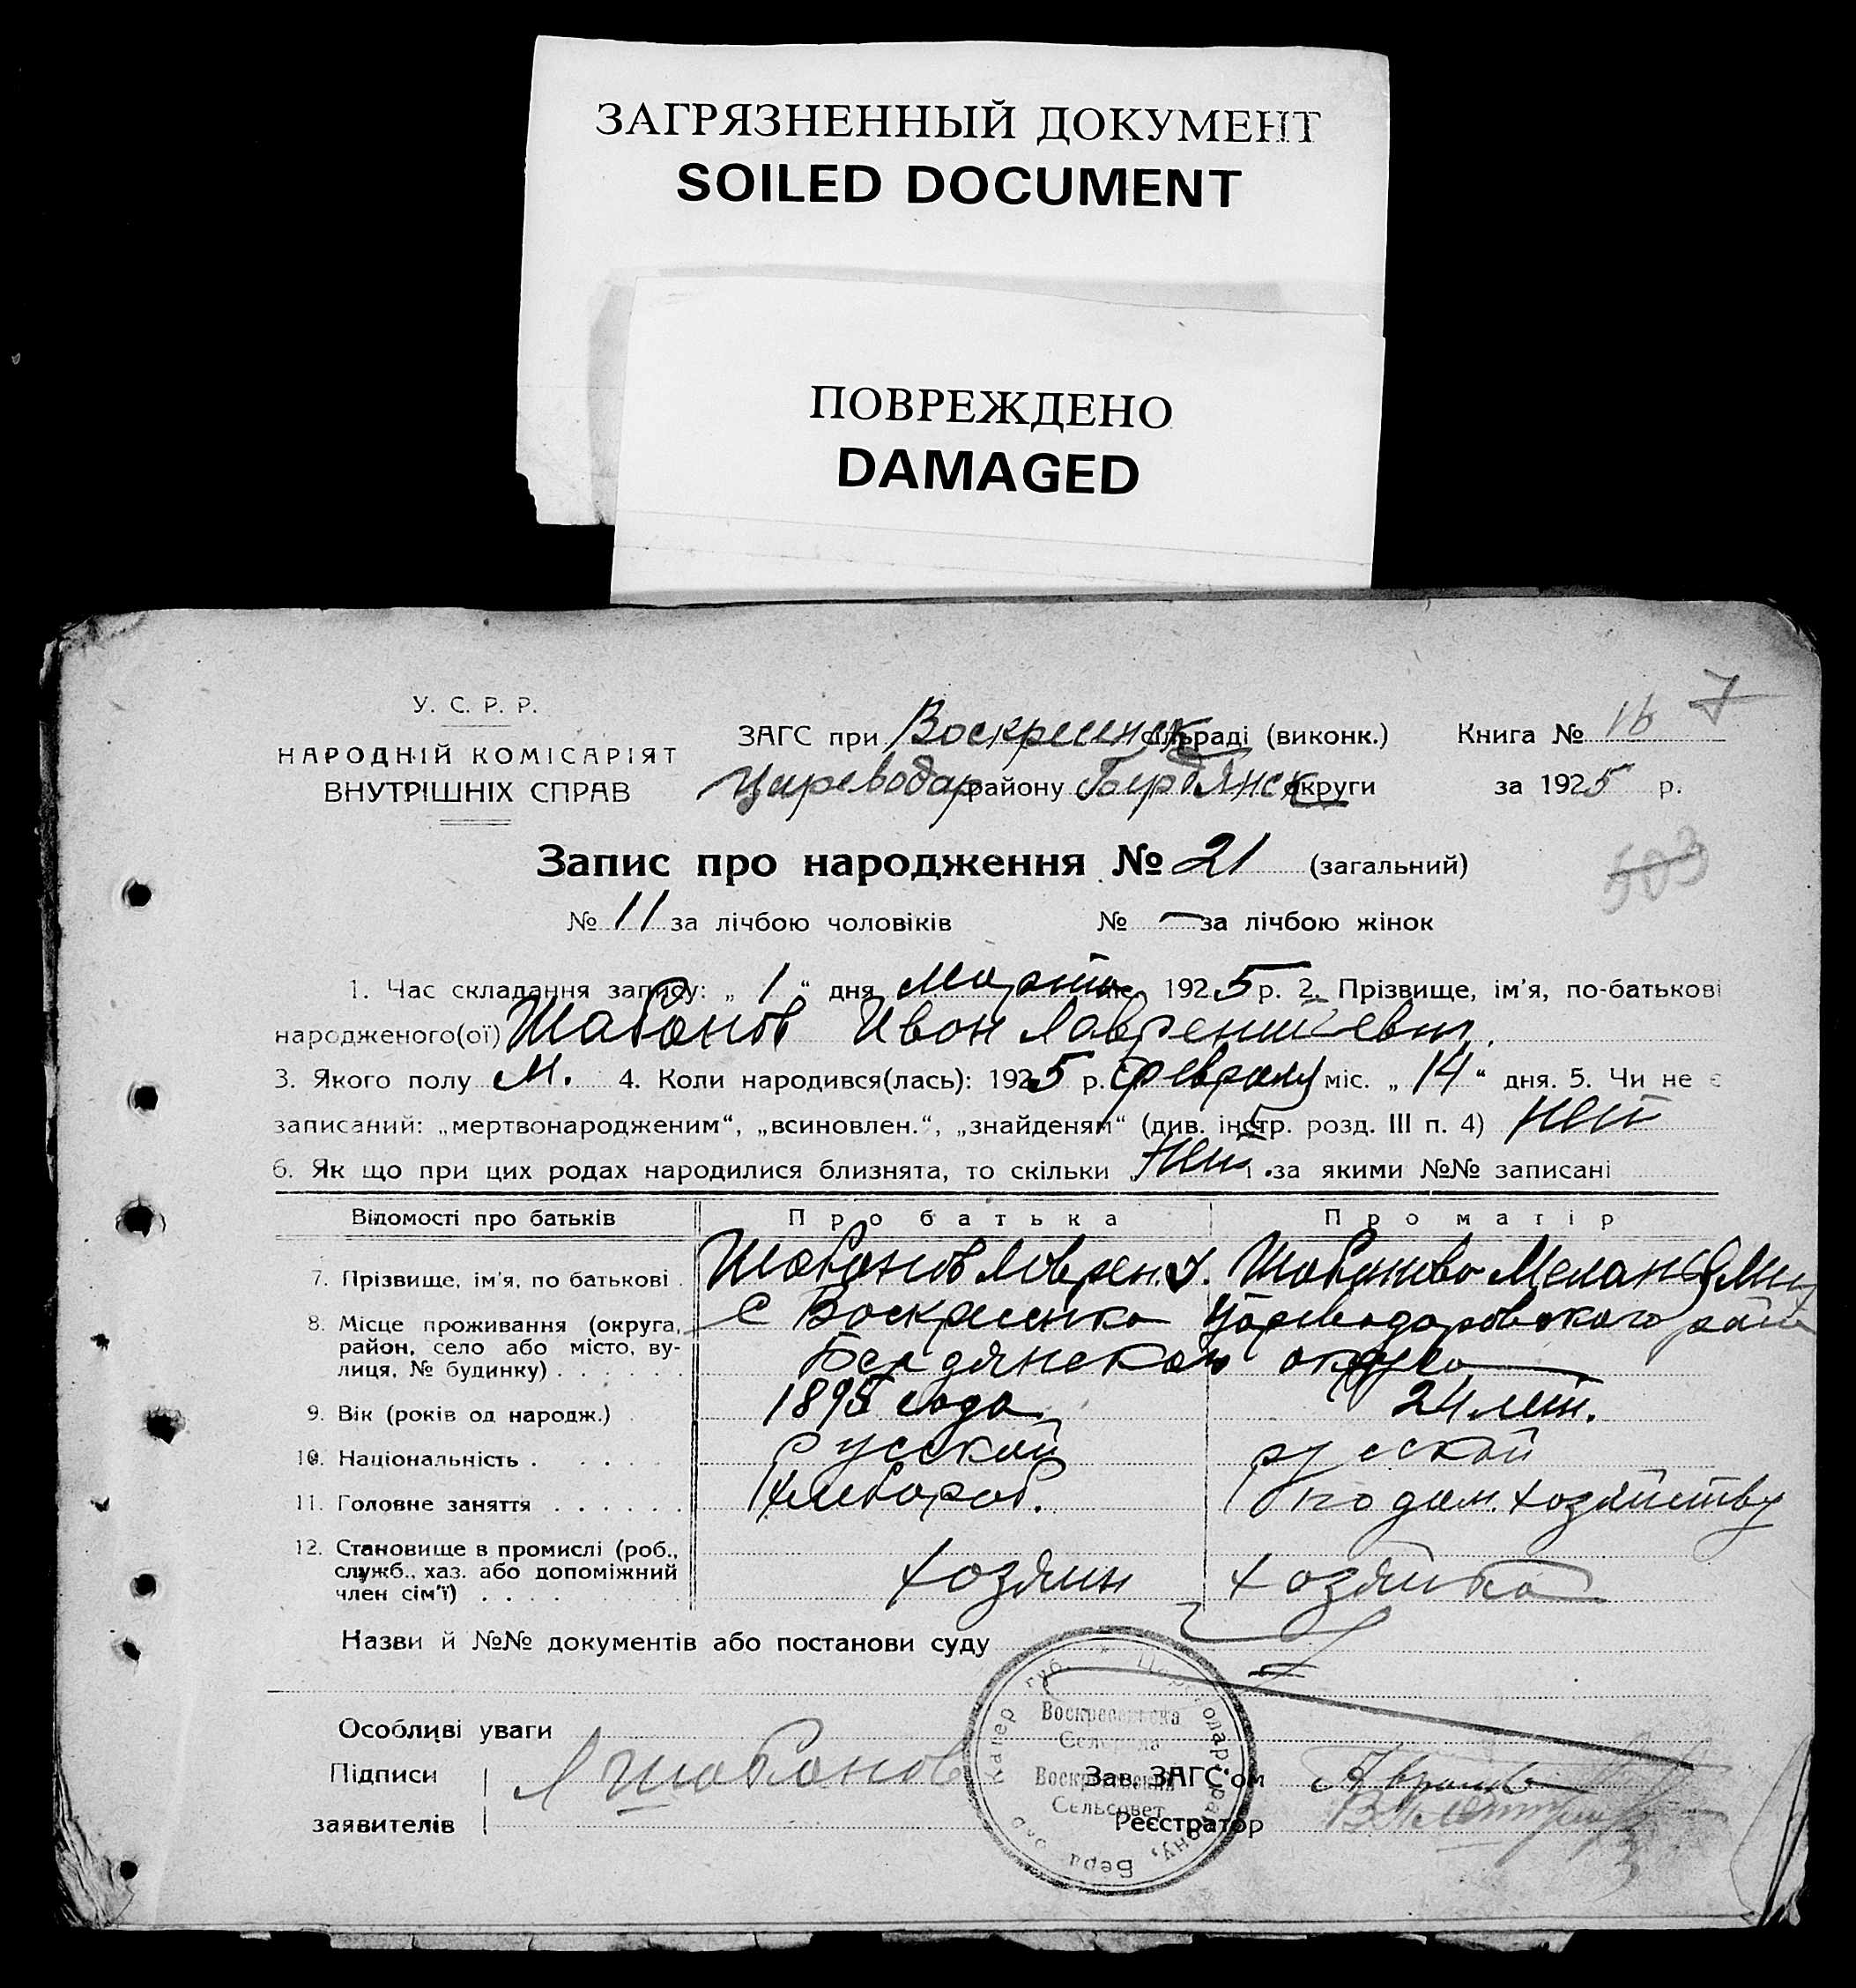 ЗАГРЯЗНЕННЫЙ ДОКУМЕНТ
SOILED DOCUMENT
ПОВРЕЖДЕНО
DAMAGED
7
У. С. Р. Р.
НАРОДНІЙ КОМІСАРІЯТ
ВНУТРІШНІХ СПРАВ
ЗАГС при Воскресенск сільраді (виконк.) Книга № 16
Цареводар району Бердянск округи за 1925 р.
Запис про народження № 21 (загальний)
503
№ 11 за лічбою чоловіків № — за лічбою жінок
1. Час складання запису: „ 1 “ дня Марта 1925 р. 2. Прізвище, ім'я, по-батькові
народженого(ої) Шабанов Иван Лаврентиевич.
3. Якого полу М. 4. Коли народився(лась): 1925 р. февраля міс. „ 14 “ дня. 5. Чи не є
записаний: „мертвонародженим“, „всиновлен.“, „знайденям“ (див. інстр. розд. III п. 4) нет
6. Як що при цих родах народилися близнята, то скільки нет і за якими №№ записані
Відомості про батьків Про батька Про матір
7. Прізвище, ім'я, по батькові Шабанов Лаврен. Шабанова Мелания
8. Місце проживання (округа, с Воскресенка Цареводаровского рай
район, село або місто, ву-
лиця, № будинку) Бердянского округа
9. Вік (років од народж.) 1895 года 24 лет.
10. Національність русский русской
11. Головне заняття хлебороб. по дом. хозяйству
12. Становище в промислі (роб.,
служб., хаз. або допоміжний
член сім'ї) хозяин хозяйка
Назви й №№ документів або постанови суду
Особливі уваги
Воскресенська
Сельрада
Воскресенский
Сельсовет
Підписи Л Шабанов Зав. ЗАГС'ом
заявителів Реєстратор